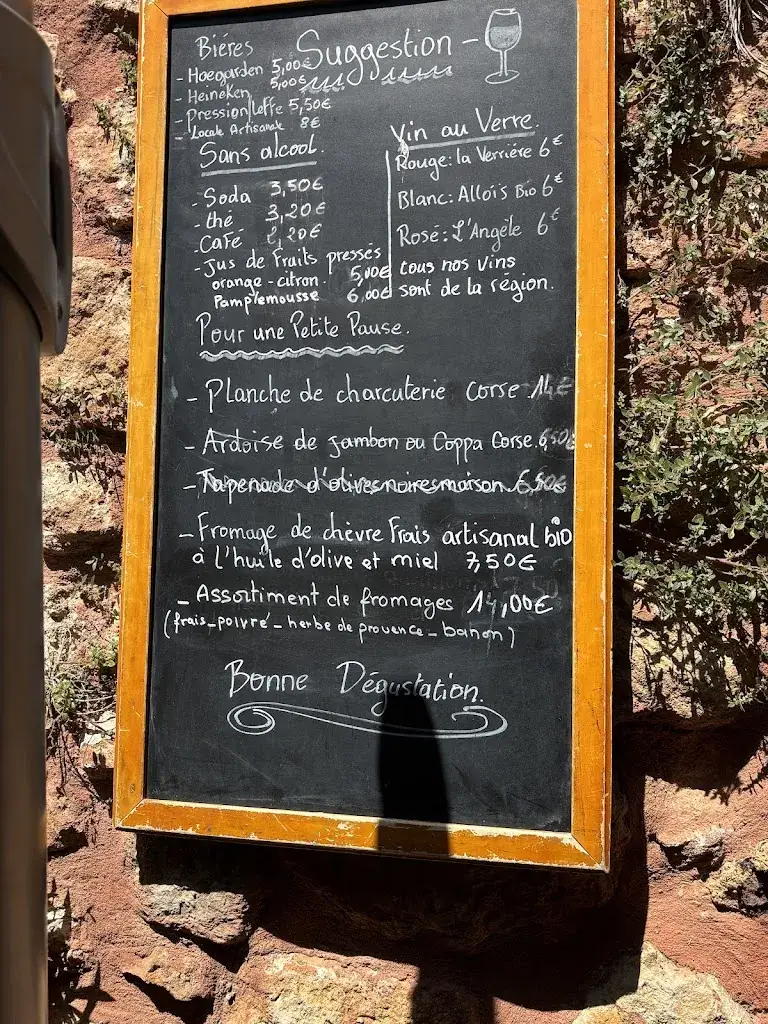 Suggestion -
Bières
- Hoegarden 5,00€
- Heineken 5,00€
- Pression/leffe 5,50€
- Locale Artisanale 8€
Sans alcool.
- Soda 3,50€
- thé 3,20€
- Café 2,20€
- Jus de Fruits pressés
orange - citron. 5,00€
Pamplemousse 6,00€
Vin au Verre.
Rouge: la Verrière 6€
Blanc: Alloïs Bio 6€
Rosé: L'Angèle 6€
tous nos vins
sont de la région.
Pour une Petite Pause.
- Planche de charcuterie Corse. 14€
- Ardoise de jambon ou Coppa Corse. 6,50€
- Tapenade d'olives noires maison. 6,50€
- Fromage de chèvre Frais artisanal bio
à l'huile d'olive et miel 7,50€
- Assortiment de fromages 14,00€
(frais - poivre - herbe de provence - banon)
Bonne Dégustation.